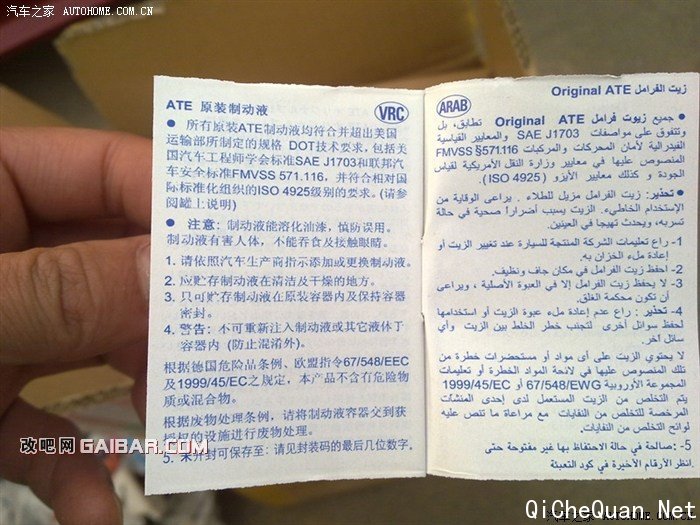 汽车之家 AUTOHOME.COM.CN
ATE 原装制动液
VRC
● 所有原装ATE制动液均符合并超出美国
运输部所制定的规格 DOT技术要求,包括美
国汽车工程师学会标准SAE J1703和联邦汽
车安全标准FMVSS 571.116，并符合相对国
际标准化组织的ISO 4925级别的要求。(请参
阅罐上说明)
● 注意：制动液能溶化油漆，慎防误用。
制动液有害人体，不能吞食及接触眼睛。
1. 请依照汽车生产商指示添加或更换制动液。
2. 应贮存制动液在清洁及干燥的地方。
3. 只可贮存制动液在原装容器内及保持容器
密封。
4. 警告：不可重新注入制动液或其它液体于
容器内 (防止混淆外)。
根据德国危险品条例、欧盟指令67/548/EEC
及1999/45/EC之规定，本产品不含有危险物
质或混合物。
根据废物处理条例，请将制动液容器交到获
授权的设施进行废物处理。
5. 未开封可保存至：请见封装码的最后几位数字。
زيت الفرامل Original ATE
ARAB
● جميع زيوت فرامل Original ATE تطابق، بل
وتتفوق على مواصفات SAE J1703 والمعايير القياسية
الفيدرالية لأمان المحركات والمركبات FMVSS §571.116
المنصوص عليها في معايير وزارة النقل الأمريكية لقياس
الجودة و كذلك معايير الأيزو (ISO 4925).
● تحذير: زيت الفرامل مزيل للطلاء . يراعى الوقاية من
الإستخدام الخاطيء. الزيت يسبب أضراراً صحية في حالة
تسربه، ويحدث تهيجا في العينين.
1- راع تعليمات الشركة المنتجة للسيارة عند تغيير الزيت أو
إعادة ملء الخزان به.
2- احفظ زيت الفرامل في مكان جاف ونظيف.
3- لا يحفظ زيت الفرامل إلا في العبوة الأصلية ، ويراعى
أن تكون محكمة الغلق.
4- تحذير : راع عدم إعادة ملء عبوة الزيت أو استخدامها
لحفظ سوائل أخرى لتجنب خطر الخلط بين الزيت وأي
سائل آخر.
لا يحتوي الزيت على أى مواد أو مستحضرات خطرة من
تلك المنصوص عليها في لائحة المواد الخطرة أو تعليمات
المجموعة الأوروبية 67/548/EWG أو 1999/45/EC
يتم التخلص من الزيت المستعمل لدى إحدى المنشآت
المرخصة للتخلص من النفايات مع مراعاة ما تنص عليه
لوائح التخلص من النفايات.
5- صالحة في حالة الاحتفاظ بها غير مفتوحة حتى
انظر الأرقام الأخيرة في كود التعبئة
改吧网 GAIBAR.COM
QiCheQuan.Net